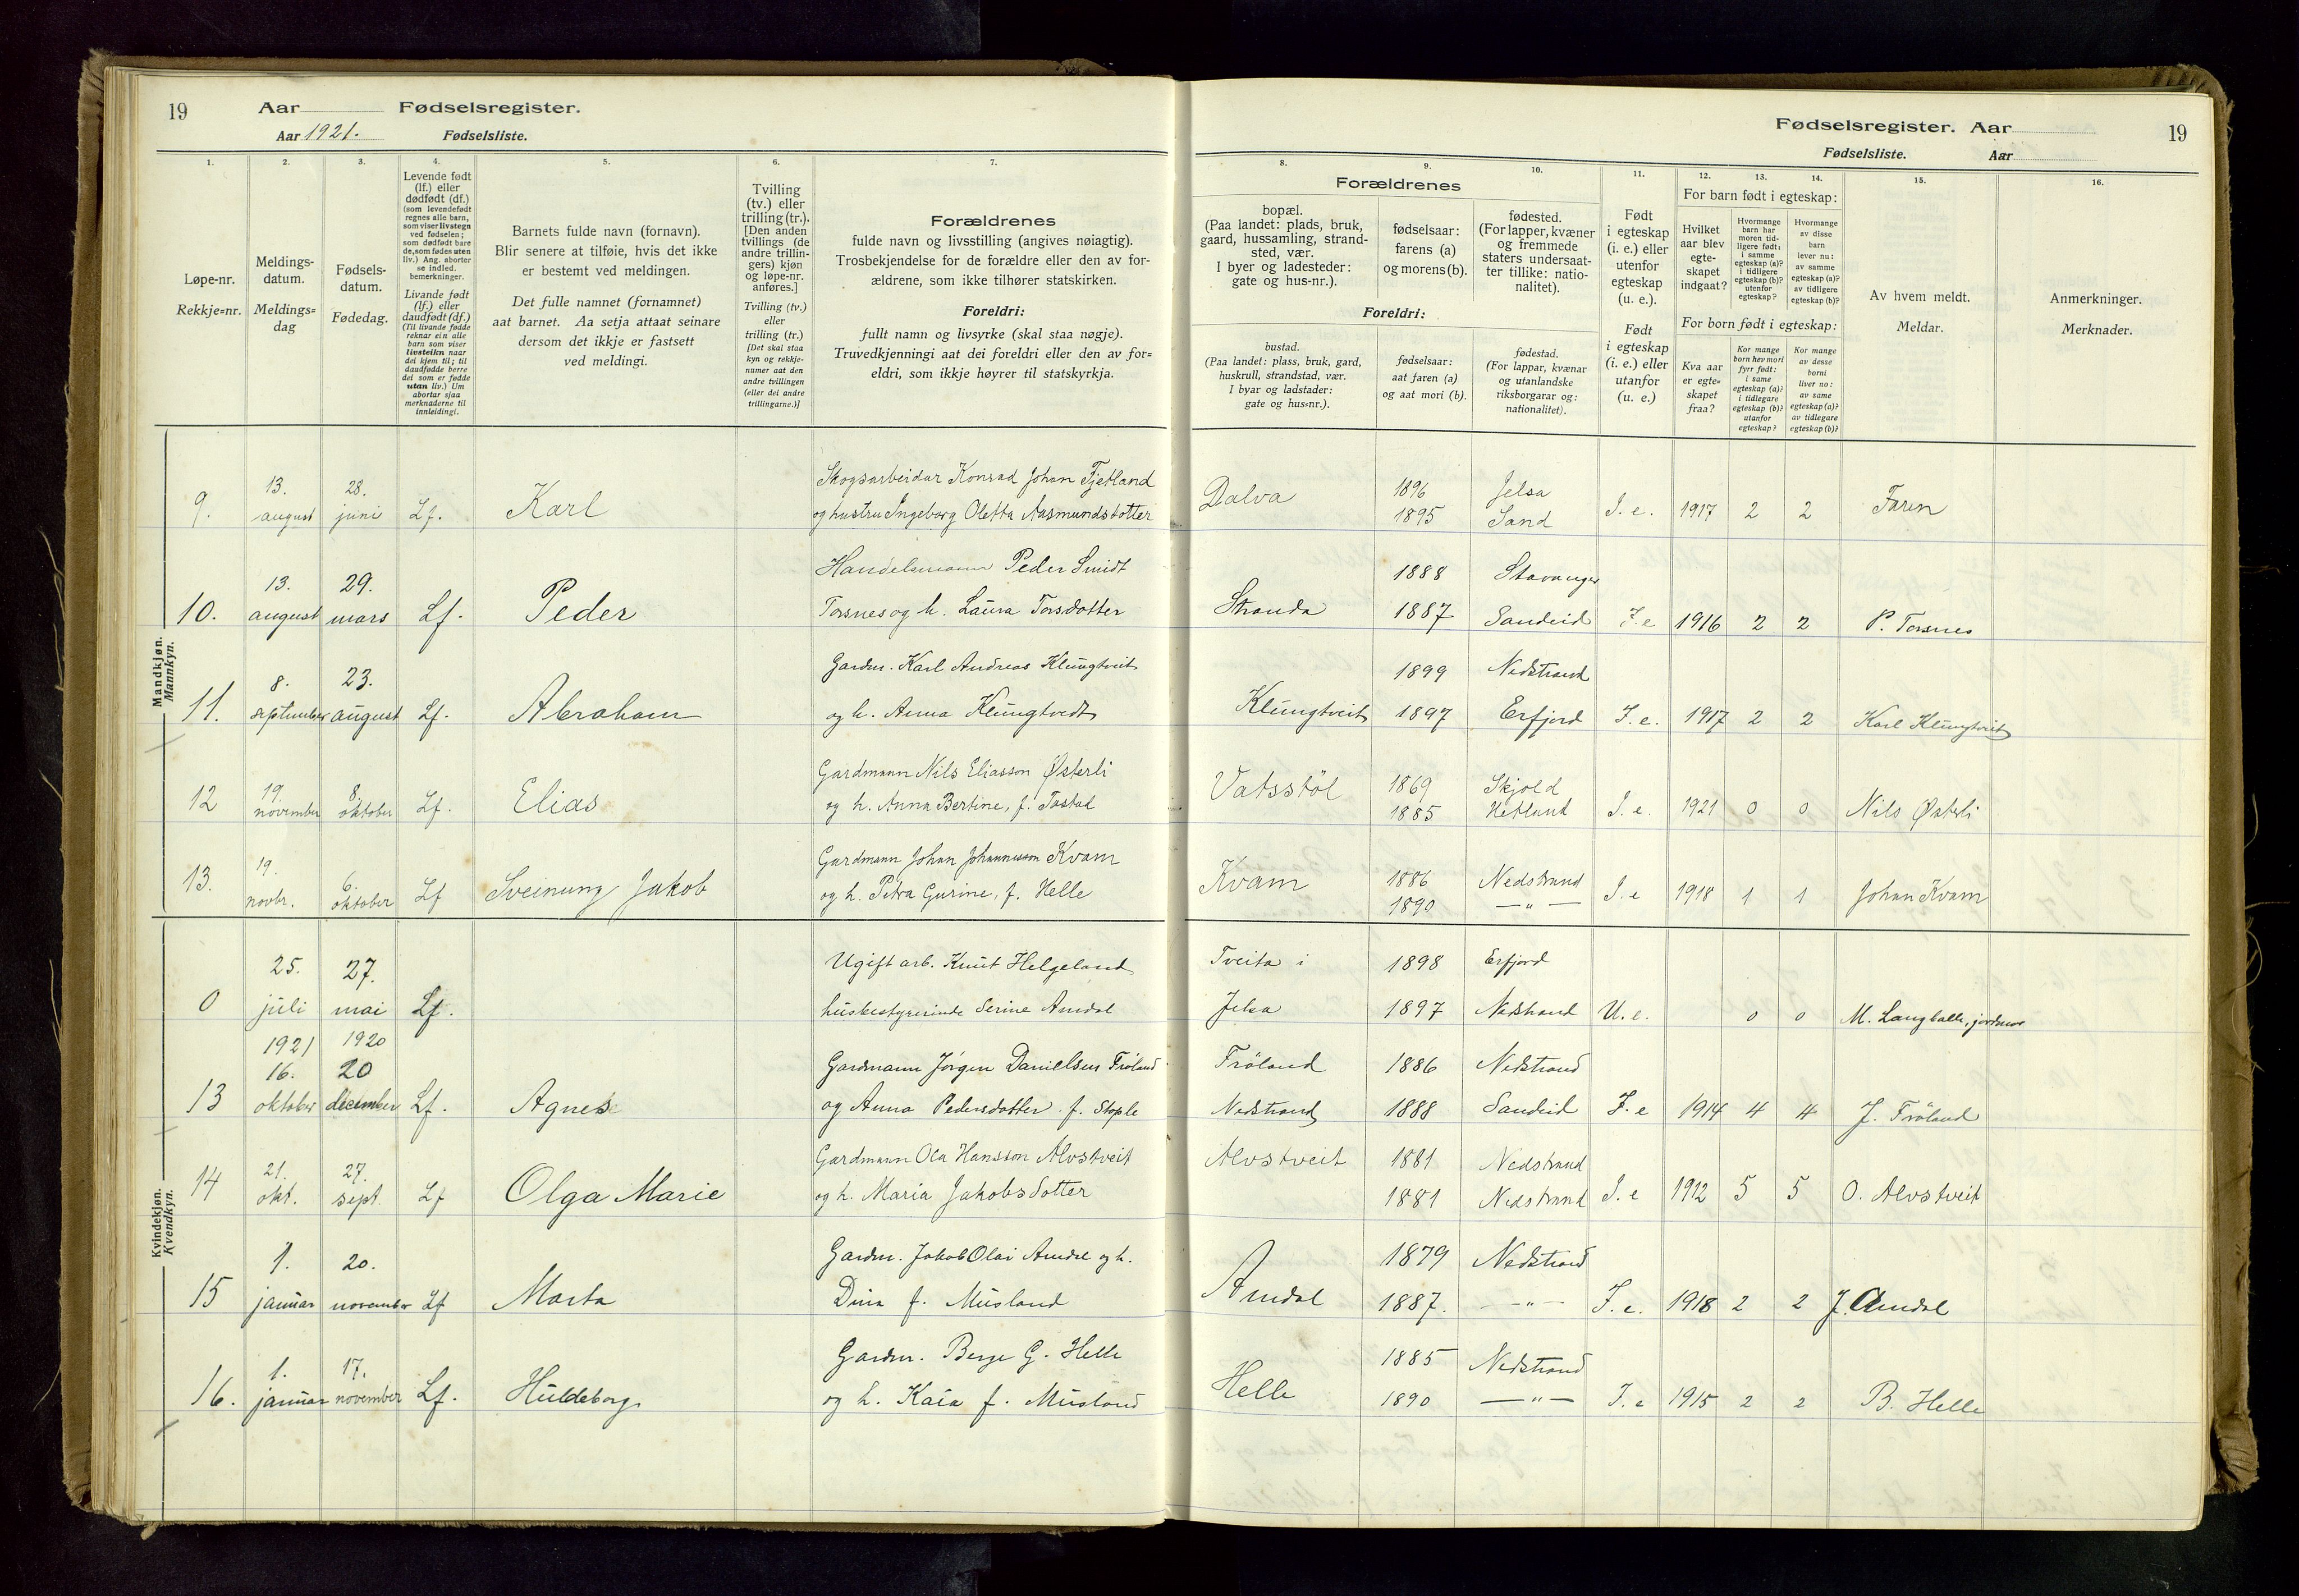 19
Aar
Fødselsregister.
Aar 1921.
Fødselsliste.
1.
2.
3.
4.
5.
6.
7.
Løpe-nr.
Rekkje=nr.
Meldings-
datum.
Meldings=
dag
Fødsels-
datum.
Fødedag.
Levende født
(lf.) eller
dødfødt (df.)
(som levendefødt
regnes alle barn,
som viser livstegn
ved fødselen;
som dødfødt bare
de, som fødes uten
liv.) Ang. aborter
se indled.
bemerkninger.
Livande født
(lf.) eller
daudfødt (df.)
(Til livande fødde
reknar ein alle
barn som viser
livsteikn naar
dei kjem til; til
daudfødde berre
dei som er fødde
utan liv.) Um
abortar sjaa
merknaderne til
innleidingi.
Barnets fulde navn (fornavn).
Blir senere at tilføie, hvis det ikke
er bestemt ved meldingen.
Det fulle namnet (fornamnet)
aat barnet. Aa setja attaat seinare
dersom det ikkje er fastsett
ved meldingi.
Tvilling
(tv.) eller
trilling (tr.).
[Den anden
tvillings (de
andre trillin-
gers) kjøn
og løpe-nr.
anføres.]
Tvilling (tv.)
eller
trilling (tr.)
[Det skal staa
kyn og rekkje-
numer aat den
andre tvillingen
(eller dei andre
trillingarne.)]
Forældrenes
fulde navn og livsstilling (angives nøiagtig).
Trosbekjendelse for de forældre eller den av for-
ældrene, som ikke tilhører statskirken.
Foreldri:
fullt namn og livsyrke (skal staa nøgje).
Truvedkjenningi aat dei foreldri eller den av for=
eldri, som ikkje høyrer til statskyrkja.
Fødselsregister. Aar
19
Fødselsliste.
Aar
8.
9.
10.
11.
12.
13.
14.
15.
16.
Forældrenes
bopæl.
(Paa landet: plads, bruk,
gaard, hussamling, strand-
sted, vær.
I byer og ladesteder:
gate og hus-nr.).
fødselsaar:
farens (a)
og morens (b).
fødested.
(For lapper, kvæner
og fremmede
staters undersaat-
ter tillike: natio-
nalitet).
Foreldri:
bustad.
(Paa landet: plass, bruk, gard,
huskrull, strandstad, vær.
I byar og ladstader:
gate og hus=nr.).
fødselsaar:
aat faren (a)
og aat mori (b).
fødestad.
(For lappar, kvænar
og utanlandske
riksborgarar og:
nationalitet).
Født
i egteskap
(i. e.) eller
utenfor
egteskap
(u. e.).
Født
i egteskap
(i. e.) eller
utanfor
(u. e.)
For barn født i egteskap:
Hvilket
aar blev
egte-
skapet
indgaat?
Hvormange
barn har
moren tid-
ligere født:
i samme
egteskap (a)?
i tidligere
egteskap (b)?
utenfor
egteskap?
Hvormange
av disse
barn
lever nu:
av samme
egteskap (a)?
av tidligere
egteskap (b)?
For born født i egteskap:
Kva aar
er egte=
skapet
fraa?
Kor mange
born hev mori
fyrr født:
i same
egteskap (a)?
i tidlegare
egteskap (b)?
utanfor
egteskap?
Kor mange
av desse
borni
liver no:
av same
egteskap (a)?
av tidlegare
egteskap (b)?
Av hvem meldt.
Meldar.
Anmerkninger.
Merknader.
Mandkjøn.
Mannkyn.
9. 13. august 28. juni Lf. Karl Skogsarbeidar Konrad Johan Fjetland
og hustru Ingeborg Oletta Aasmundsdotter
Dalva 1896 Jelsa
1895 Sand I. e. 1917 2 2 Faren
10. 13. august 29. mars Lf. Peder Handelsmann Peder Smidt
Torsnes og h. Laura Torsdotter
Stranda 1888 Stavanger
1887 Sandeid I. e 1916 2 2 P. Torsnes
11. 8. september 23. august Lf. Abraham Gardm. Karl Andreas Klungtveit
og h. Anna Klungtvedt
Klungtveit 1899 Nedstrand
1897 Erfjord I. e. 1917 2 2 Karl Klungtveit
12 19. november 8. oktober Lf. Elias Gardmann Nils Eliasson Østerli
og h. Anna Bertine, f. Tastad
Vatsstöl 1869 Skjold
1885 Hetland I. e. 1921 0 0 Nils Østerli
13. 19. novbr. 6. oktober Lf Sveinung Jakob Gardmann Johan Johannesson Kvam
og h. Petra Gurine, f. Helle
Kvam 1886 Nedstrand
1890 — " — I. e 1918 1 1 Johan Kvam
Kvindekjøn.
Kvendkyn.
0 25. juli 1921 27. mai 1920 Lf. Ugift arb. Knut Helgeland
husbestyrerinde Serine Amdal
Tveita i 1898 Erfjord
Jelsa 1897 Nedstrand U. e. 0 0 M. Langballe, jordmor
13 16. oktober 20 december Lf. Agnes Gardmann Jörgen Daniellsen Fröland
og Anna Pedersdotter f. Stople
Fröland 1886 Nedstrand
Nedstrand 1888 Sandeid I. e 1914 4 4 J. Fröland
14 21. okt. 27. sept. Lf Olga Marie Gardmann Ola Hansson Alvstveit
og h. Maria Jakobsdotter
Alvstveit 1881 Nedstrand
1881 Nedstrand I. e 1912 5 5 O. Alvstveit
15 1. januar 20. november Lf Marta Gardm. Jakob Olai Amdal og h.
Dina f. Musland
Amdal 1879 Nedstrand
1887. — " — I. e. 1918 2 2 J. Amdal
16. 1. januar 17. november Lf. Huldeborg Gardm. Berge G. Helle
og h. Kaia f. Musland
Helle 1885 Nedstrand
1890 — " — I. e 1915 2 2 B. Helle